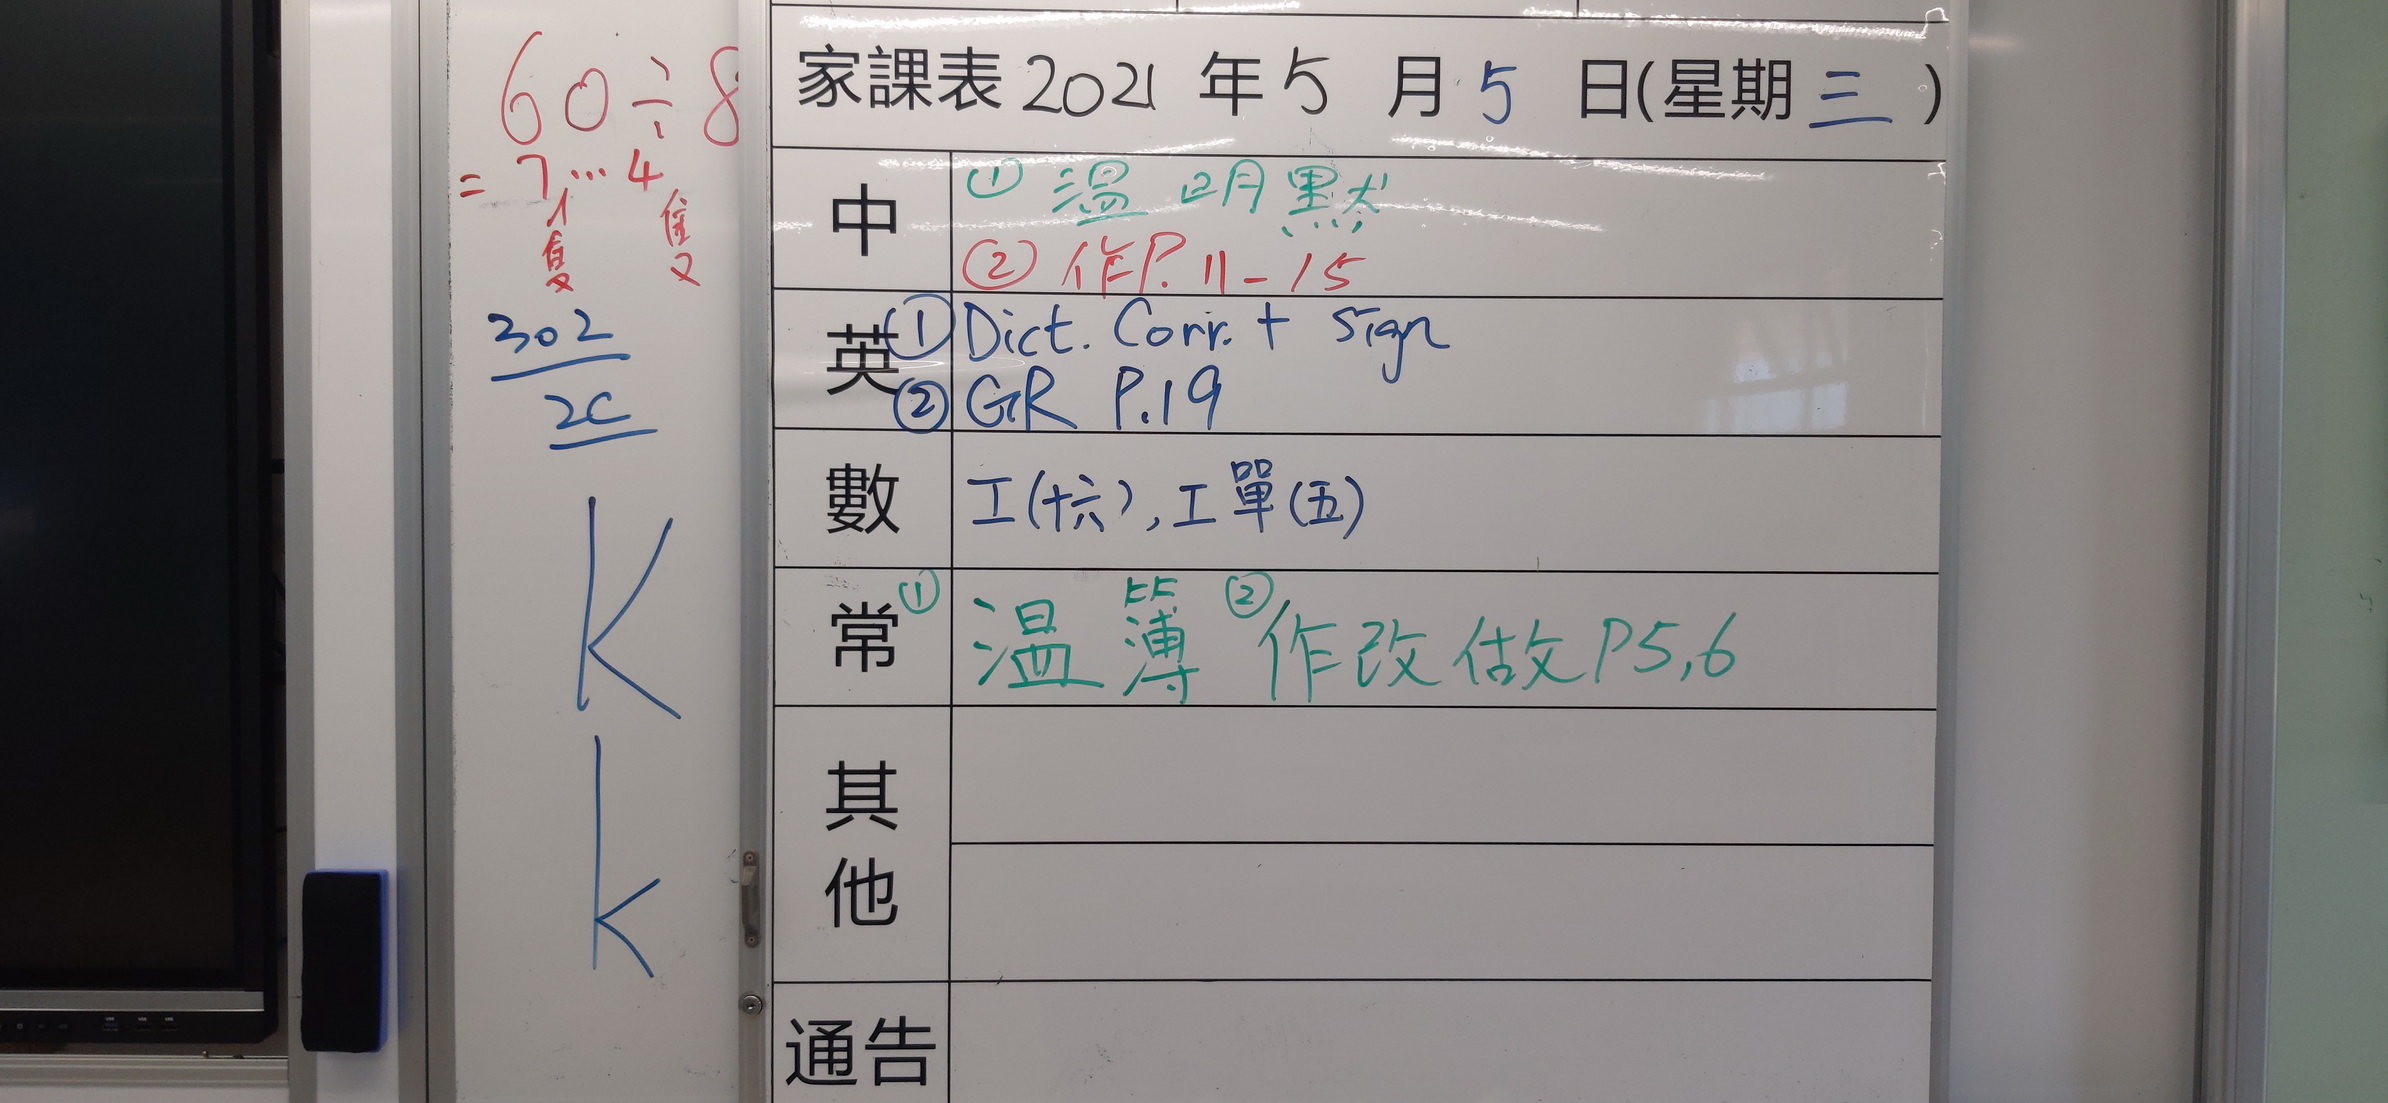 60÷8
= 7...4
302
2C
K
k
家課表 2021 年 5 月 5 日(星期三)
中
① 溫 明 默
② 作P.11-15
英
① Dict. Corr. + sign
② GR P.19
數
工(十六), 工單(五)
常
① 溫簿 ② 作改做P5,6
其他
通告